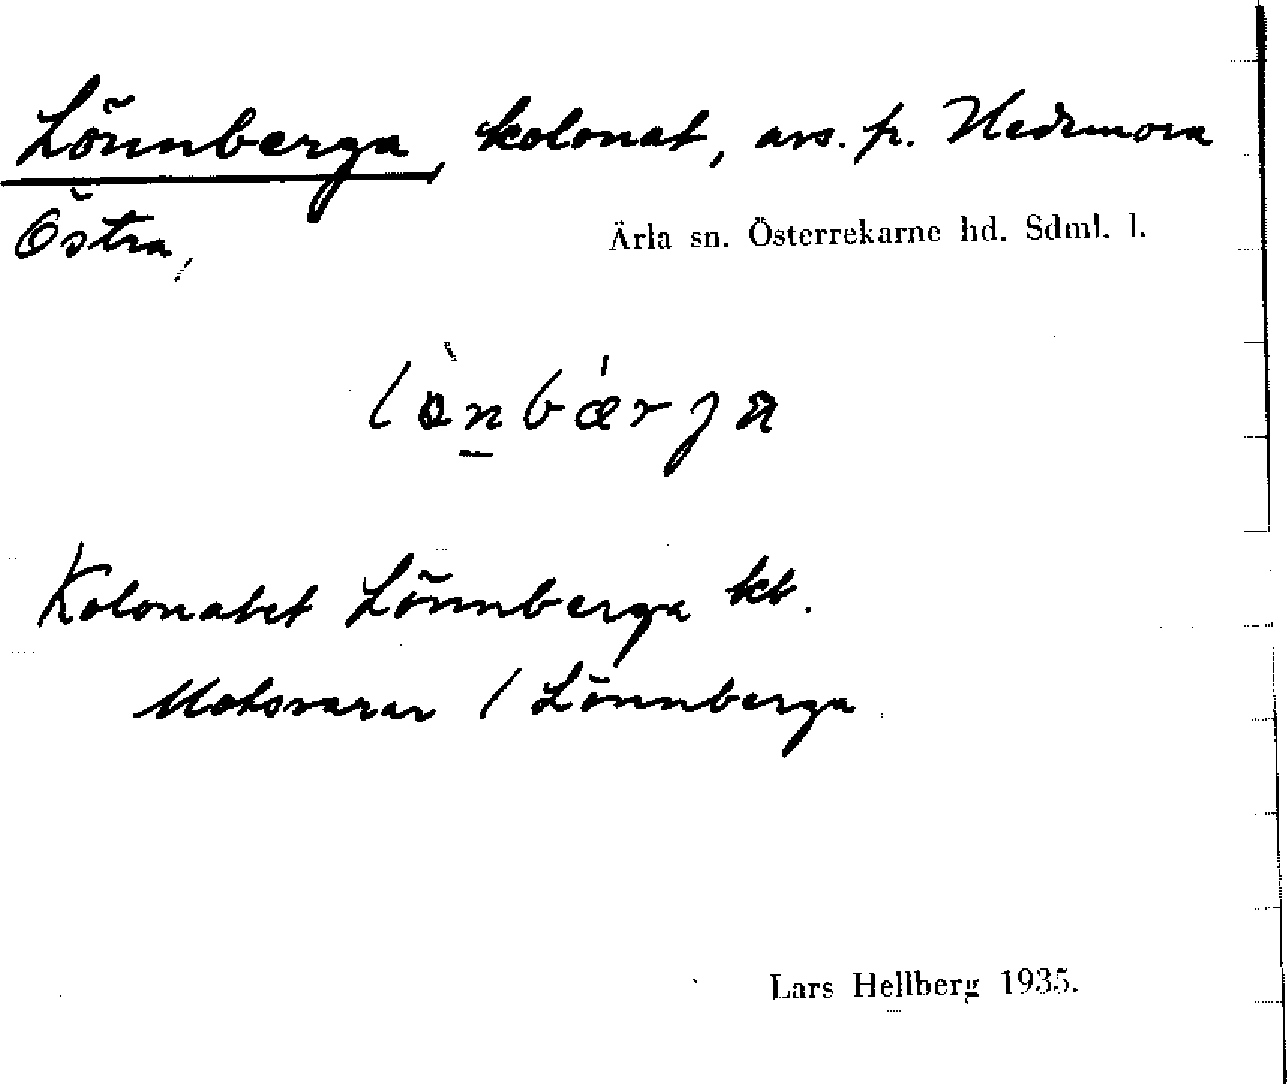 Lönnberga, kolonat, avs. fr. Hedmora
Östra,
Ärla sn. Österrekarne hd. Sdml. l.
lönbærja
Kolonatet Lönnberga kb.
Motsvarar / Lönnberga
Lars Hellberg 1935.